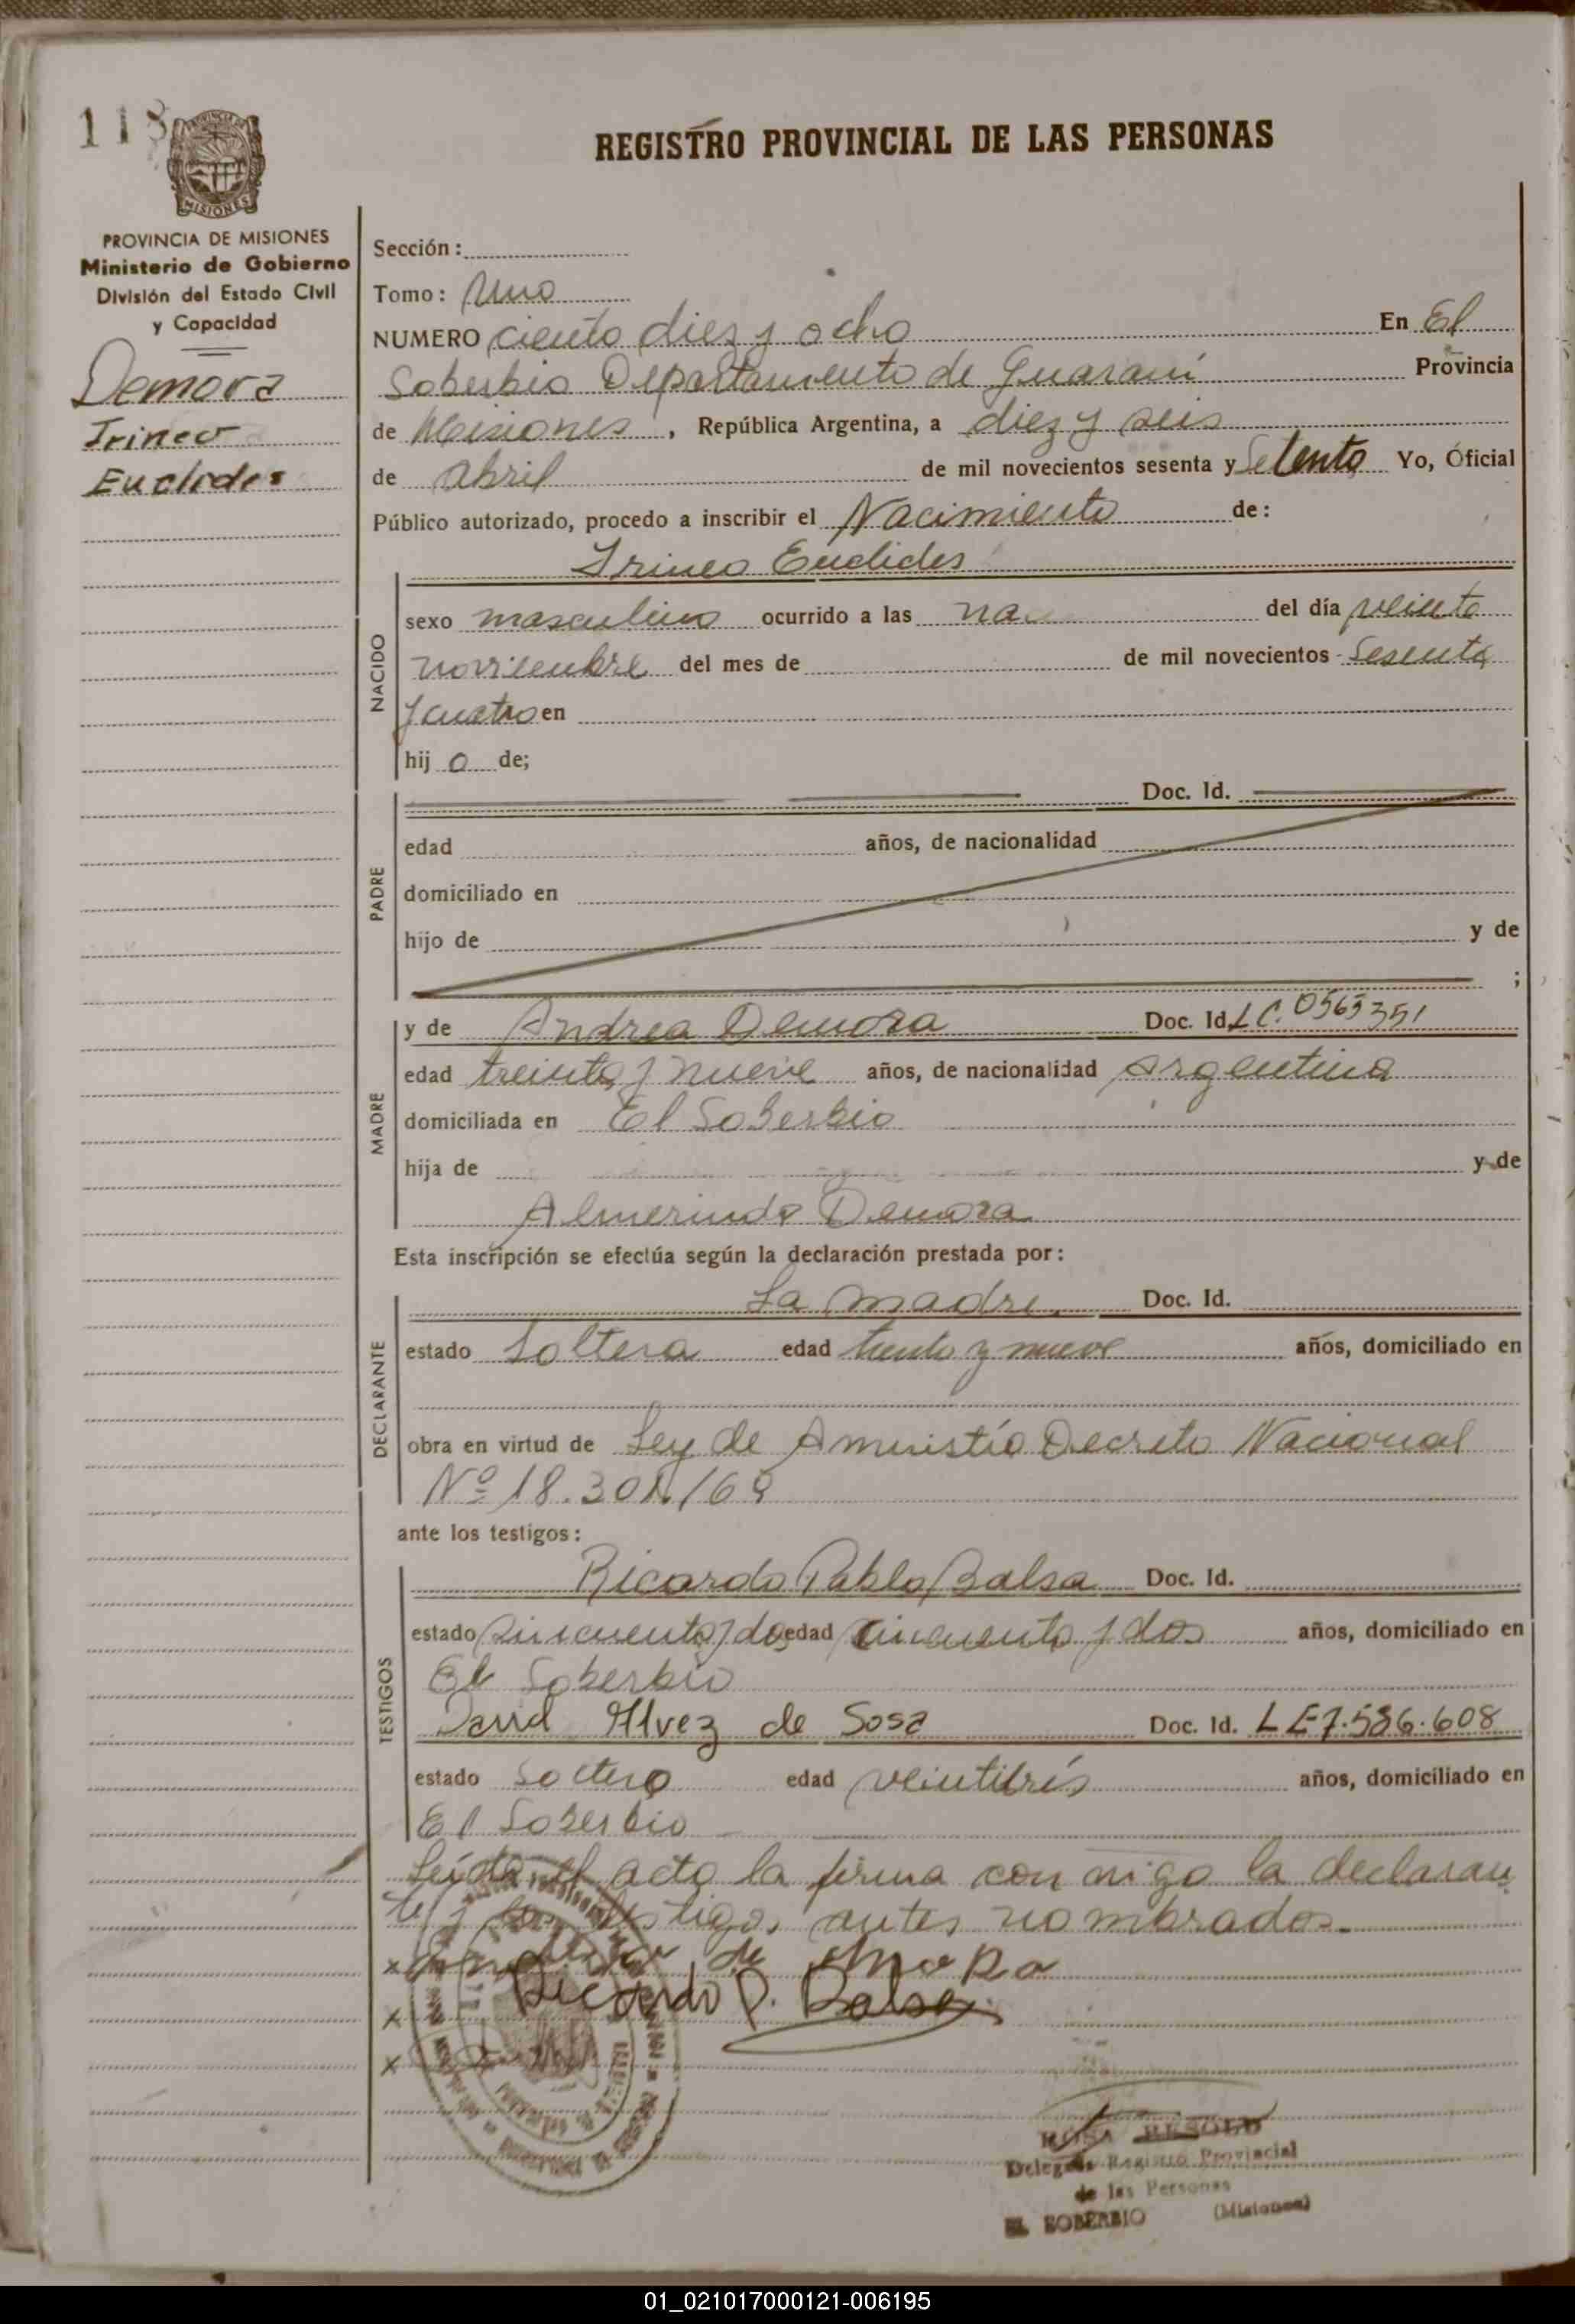 118
REGISTRO PROVINCIAL DE LAS PERSONAS
MISIONES
PROVINCIA DE MISIONES
Ministerio de Gobierno
División del Estado Civil
y Capacidad
Demora
Irineo
Euclides
Sección :
Tomo : Uno
NUMERO ciento diez y ocho En El
Soberbio Departamento de Guaraní Provincia
de Misiones , República Argentina, a diez y seis
de abril de mil novecientos sesenta y Setenta Yo, Oficial
Público autorizado, procedo a inscribir el Nacimiento de :
Irineo Euclides
NACIDO
sexo masculino ocurrido a las del día veinte
noviembre del mes de de mil novecientos Sesenta
y cuatro en
hij o de;
PADRE
Doc. Id.
edad años, de nacionalidad
domiciliado en
hijo de y de
;
MADRE
y de Andrea Demora Doc. Id. L C. 0563351
edad treinta y nueve años, de nacionalidad Argentina
domiciliada en El Soberbio
hija de y de
Almerinda Demora
Esta inscripción se efectúa según la declaración prestada por :
DECLARANTE
La madre. Doc. Id.
estado Soltera edad treinta y nueve años, domiciliado en
obra en virtud de Ley de Amnistía Decreto Nacional
Nº 18.301/69
ante los testigos :
TESTIGOS
Ricardo Pablo Balsa Doc. Id.
estado cincuenta y dos edad cincuenta y dos años, domiciliado en
El Soberbio
David Alvez de Sosa Doc. Id. L E 7.586.608
estado Soltero edad veintitrés años, domiciliado en
El Soberbio
Leída el acta la firma con migo la declaran
te y los testigos antes nombrados.
x de Mora
x Ricardo P. Balsa
x
ROSA
Delegada Registro Provincial
de las Personas
EL SOBERBIO (Misiones)
01_021017000121-006195